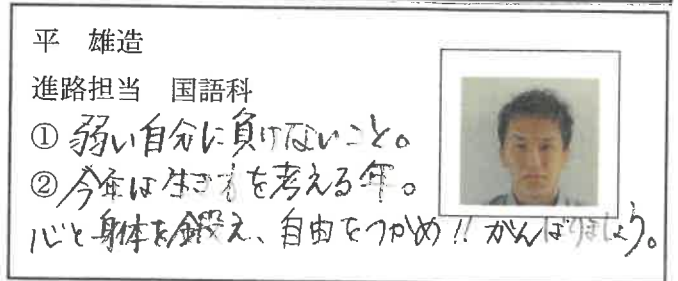 平　雄造
進路担当　国語科
① 弱い自分に負けないこと。
② 今年は生き方を考える年。
心と身体を鍛え、自由をつかめ!! がんばりましょう。